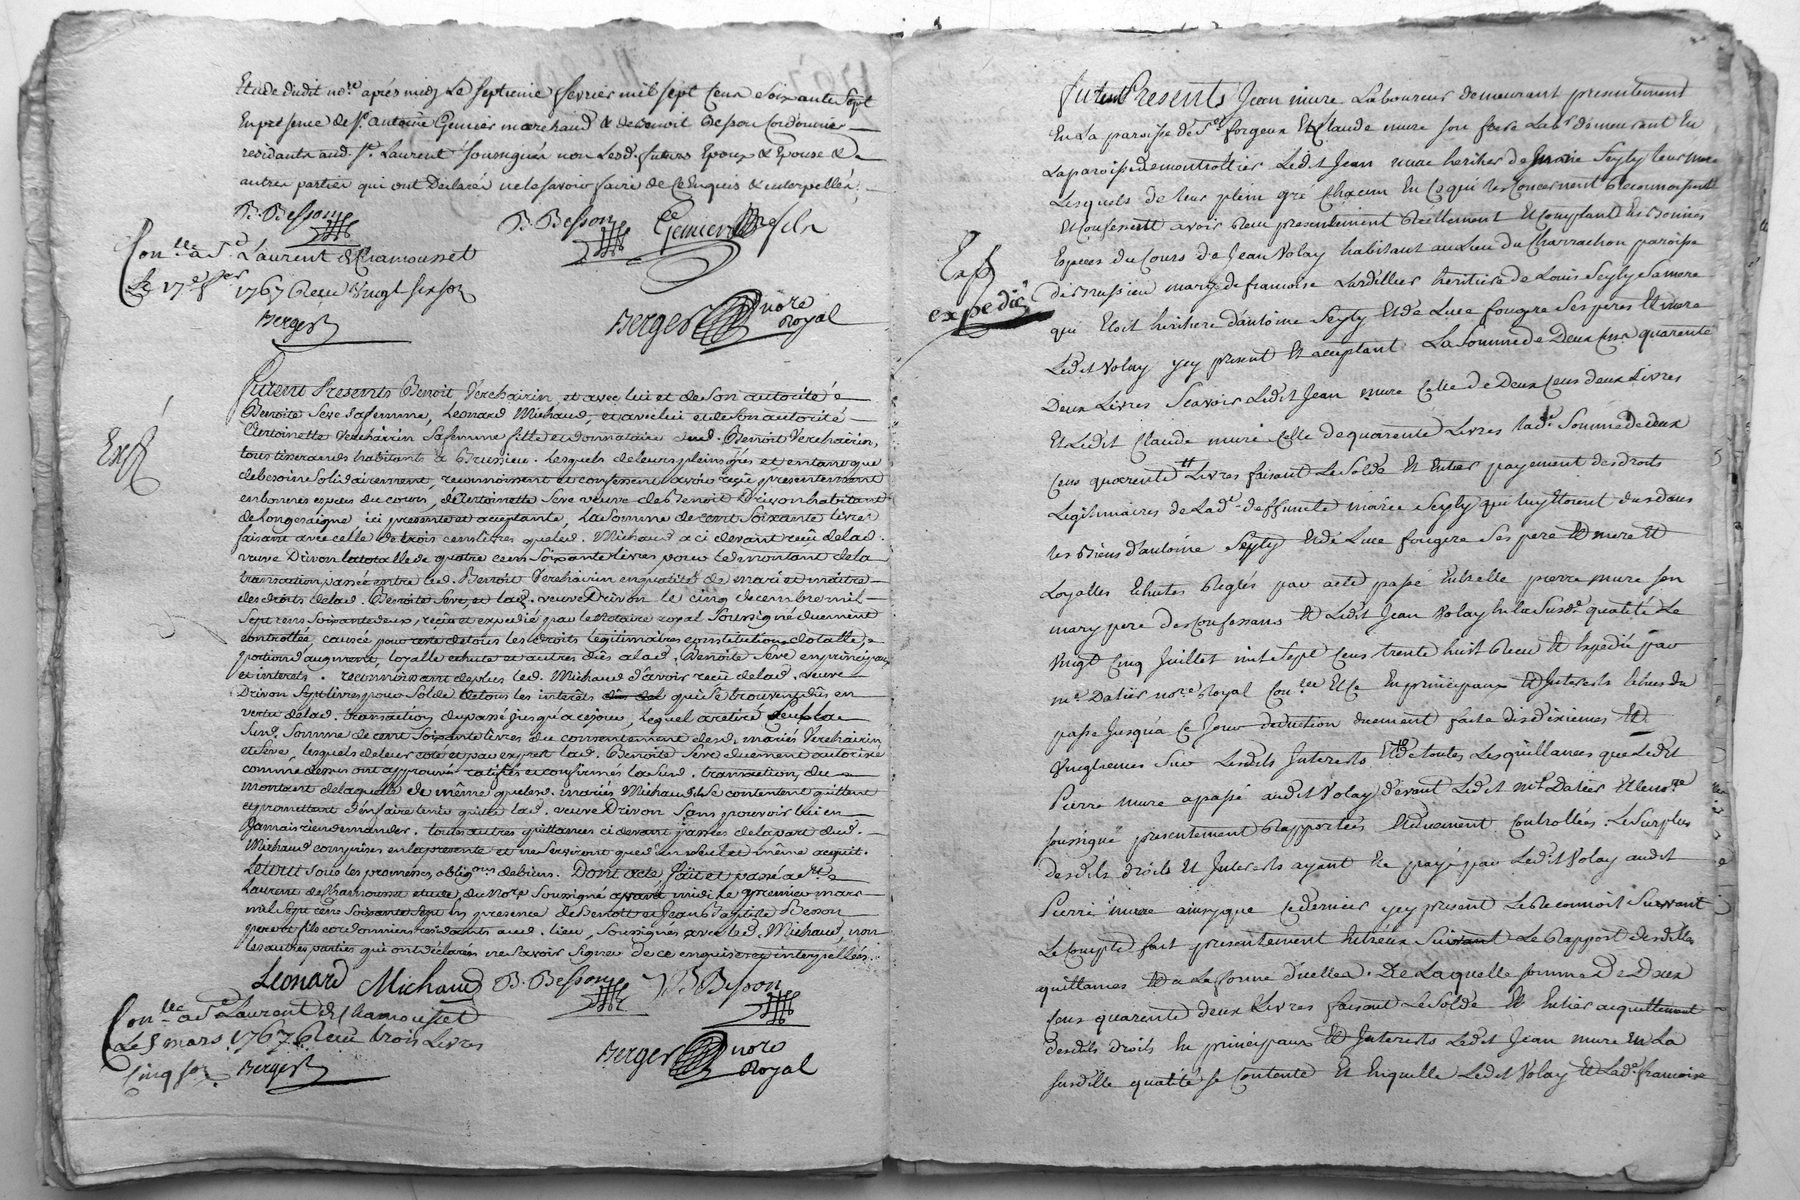 Etude dudit no.re après midy Le septieme fevrier mil sept Cens soixante sept
En presence de Sr. antoine Genier marchand & de benoit besson Cordonnier
residants aud. St. Laurent soussignés non Lesd. futurs Epoux & Epouse &
autres parties qui ont Declarés ne le scavoir faire de ce Enquis & interpellés
B. Besson B. Besson Genier fils
Con.llé a St. Laurent de Chamousset
Le 17e. f.er 1767 Reçu Vingt six sols
Berger Berger no.re Royal
Exp
Furent Presents Benoit Verchairin, et avec lui et de son autorité
Benoite Seve sa femme, Leonard Michaud, et avec lui et de son autorité
Antoinette Verchairin sa femme fille et donnataire dud. Benoit Verchairin,
tous tisserands habitants a Brussieu. Lesquels de leurs pleins grés et en tant que
de besoin solidairement, reconnoissent et confessent avoir reçu presentement
en bonnes especes du cours, d'Antoinette Seve veuve de Benoit Drivon habitant
de Longessaigne, ici presente et acceptante, la somme de cent soixante livres
faisant avec celle de trois cens livres que led. Michaud a ci devant reçu de lad.
veuve Drivon la totalle de quatre cens soixante livres pour le montant de la
transaction passée entre led. Benoit Verchairin en qualité de mari et maitre
des droits de lad. Benoite Seve, et lad. veuve Drivon le cinq decembre mil
sept cens soixante deux, reçu et expedié par le notaire royal soussigné duement
controllée, causée pour reste de tous les droits legitimaires constitution dotalle,
portion d'augment, loyalle echute et autres dûs a lad. Benoite Seve en principaux
et interets. reconnoissant de plus led. Michaud d'avoir reçu de lad. veuve
Drivon sept livres pour solde de tous les interêts qui se trouvent dûs en
vertu de lad. transaction du passé jusqu'a ce jour, lequel a retiré
susd. somme de cent soixante livres du consentement desd. mariés Verchairin
et Seve, lesquels de leur coté et par exprès lad. Benoite Seve duement autorisée
comme dessus ont approuvé ratifiés et confirmés la susd. transaction, du
montant de laquelle de même que lesd. mariés Michaud ils se contentent quittent
et promettent d'en faire tenir quitte lad. veuve Drivon sans pouvoir lui en
jamais rien demander. toutes autres quittances ci devant passées de la part dud.
Michaud comprises en la presente et ne serviront que d'un seul et même acquit.
Le tout sous les promesses, oblig.ons de biens. Dont acte fait et passé a St.
Laurent de Chamousset etude du no.re soussigné avant midi le premier mars
mil sept cens soixante sept en presence de Benoit et Jean Baptiste Besson
pere et fils cordonniers residants aud. lieu, soussignés avec led. Michaud, non
les autres parties qui ont déclarés ne savoir signer de ce enquises et interpellées.
Léonard Michaud B. Besson J B Besson
Con.llé a St. Laurent de Chamousset
Le 5 mars 1767 Reçu trois Livres
Cinq sols Berger Berger no.re Royal
Furent Presents Jean mure Laboureur demeurant presentement
En La paroisse de St. forgeux Et Claude mure son frere Lab.r demeurant En
La paroisse de montrottier Ledit Jean mure heritier de Marie Seyty leur mere
Lesquels de leur plein gré Chacun En Ce qui les Concernent Reconnoissent
Et Confessent avoir Reçu presentement Reellement Et Comptant En Bonnes
Exp
expedié
Especes du Cours de Jean Volay habitant au Lieu du Charrachon paroisse
de Brussieu mary de francoise Lardillier heritiere de Louis Seyty sa mere
qui Etoit heritiere d'antoine Seyty Et de Luce fougere ses pere Et mere
Ledit Volay yey present Et acceptant La Somme de Deux Cens quarente
Deux Livres Scavoir Ledit Jean mure Celle de Deux Cens deux Livres
Et Ledit Claude mure Celle de quarente Livres lad.e Somme de deux
Cens quarente Livres faisant Le Solde Et Entier payement des droits
Legitimaires de Lad.e deffunte mariee Seyty qui luy Etoient dus dans
les Biens d'antoine Seyty Et de Luce fougere Ses pere Et mere Et
Loyalles Echutes Reglés par acte passé Entre Pierre mure son
mary pere des Confessans Et Ledit Jean Volay En la Susd. qualité Le
Vingt Cinq Juillet mil Sept Cens trente huit Reçu Et Expedié par
me. Datier no.re Royal Con.llé Et Ce En principaux Et Interets Echus du
passé Jusqu'a Ce Jour deduction duement faite des dixiemes Et
Vingtiemes Sur Lesdits Interets Et de toutes Les quittances que Ledit
Pierre mure a passé audit Volay devant Ledit me. Datier Et le no.re
soussigné presentement Rapportées Et duement Controllées. Le Surplus
desdits droits Et Interets ayant Eté payé par Ledit Volay audit
Pierre mure ainsy que Ce dernier yey present Le Reconnoit Suivant
Le Compte fait presentement Entr'eux Suivant Le Rapport desdittes
quittances Et a La forme d'icelles. De Laquelle somme De Deux
Cens quarente deux Livres faisant Le Solde Et Entier acquittement
desdits droits En principaux Et Interets Ledit Jean mure En La
susditte qualité se Contente Et En quitte Ledit Volay Et Lad.e francoise